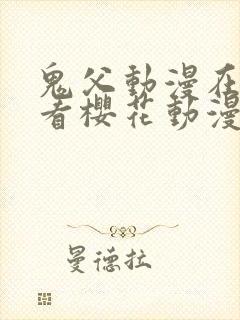 鬼父動漫在
看櫻花動漫
曼德拉